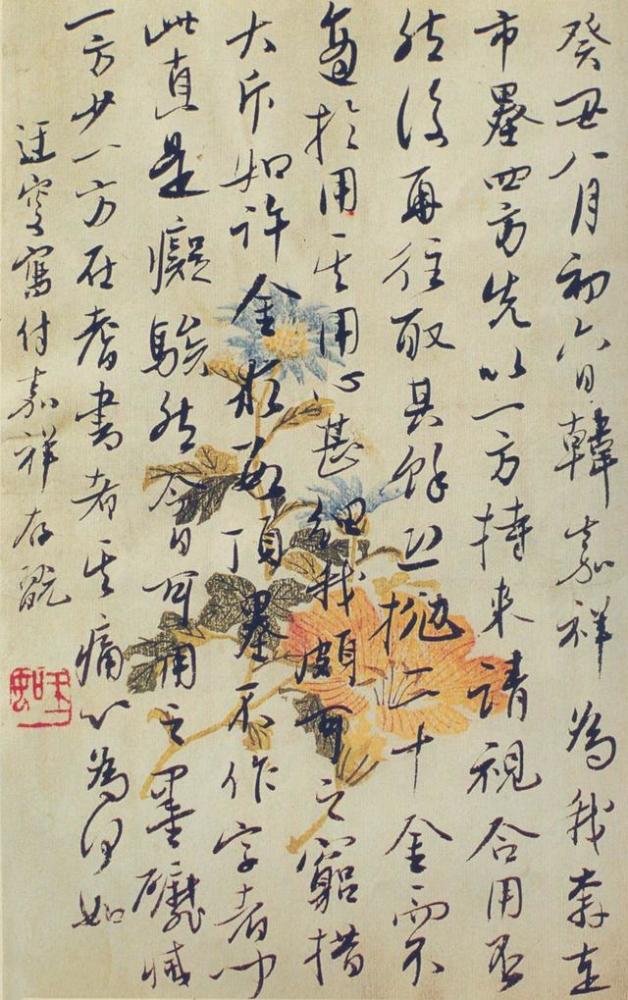 癸丑八月初六日韓嘉祥為我奔走
市墨四方先以一方持來請視合用否
然後再往取其餘恐拋二十金而不
適於用其用心甚細我頗可之窮措
大斥如許金頂墨不作字者聞
此真是癡騃然今日可用之墨礲減
一方少一方在嗜書者其痛心為何如
迂叟寫付嘉祥存翫